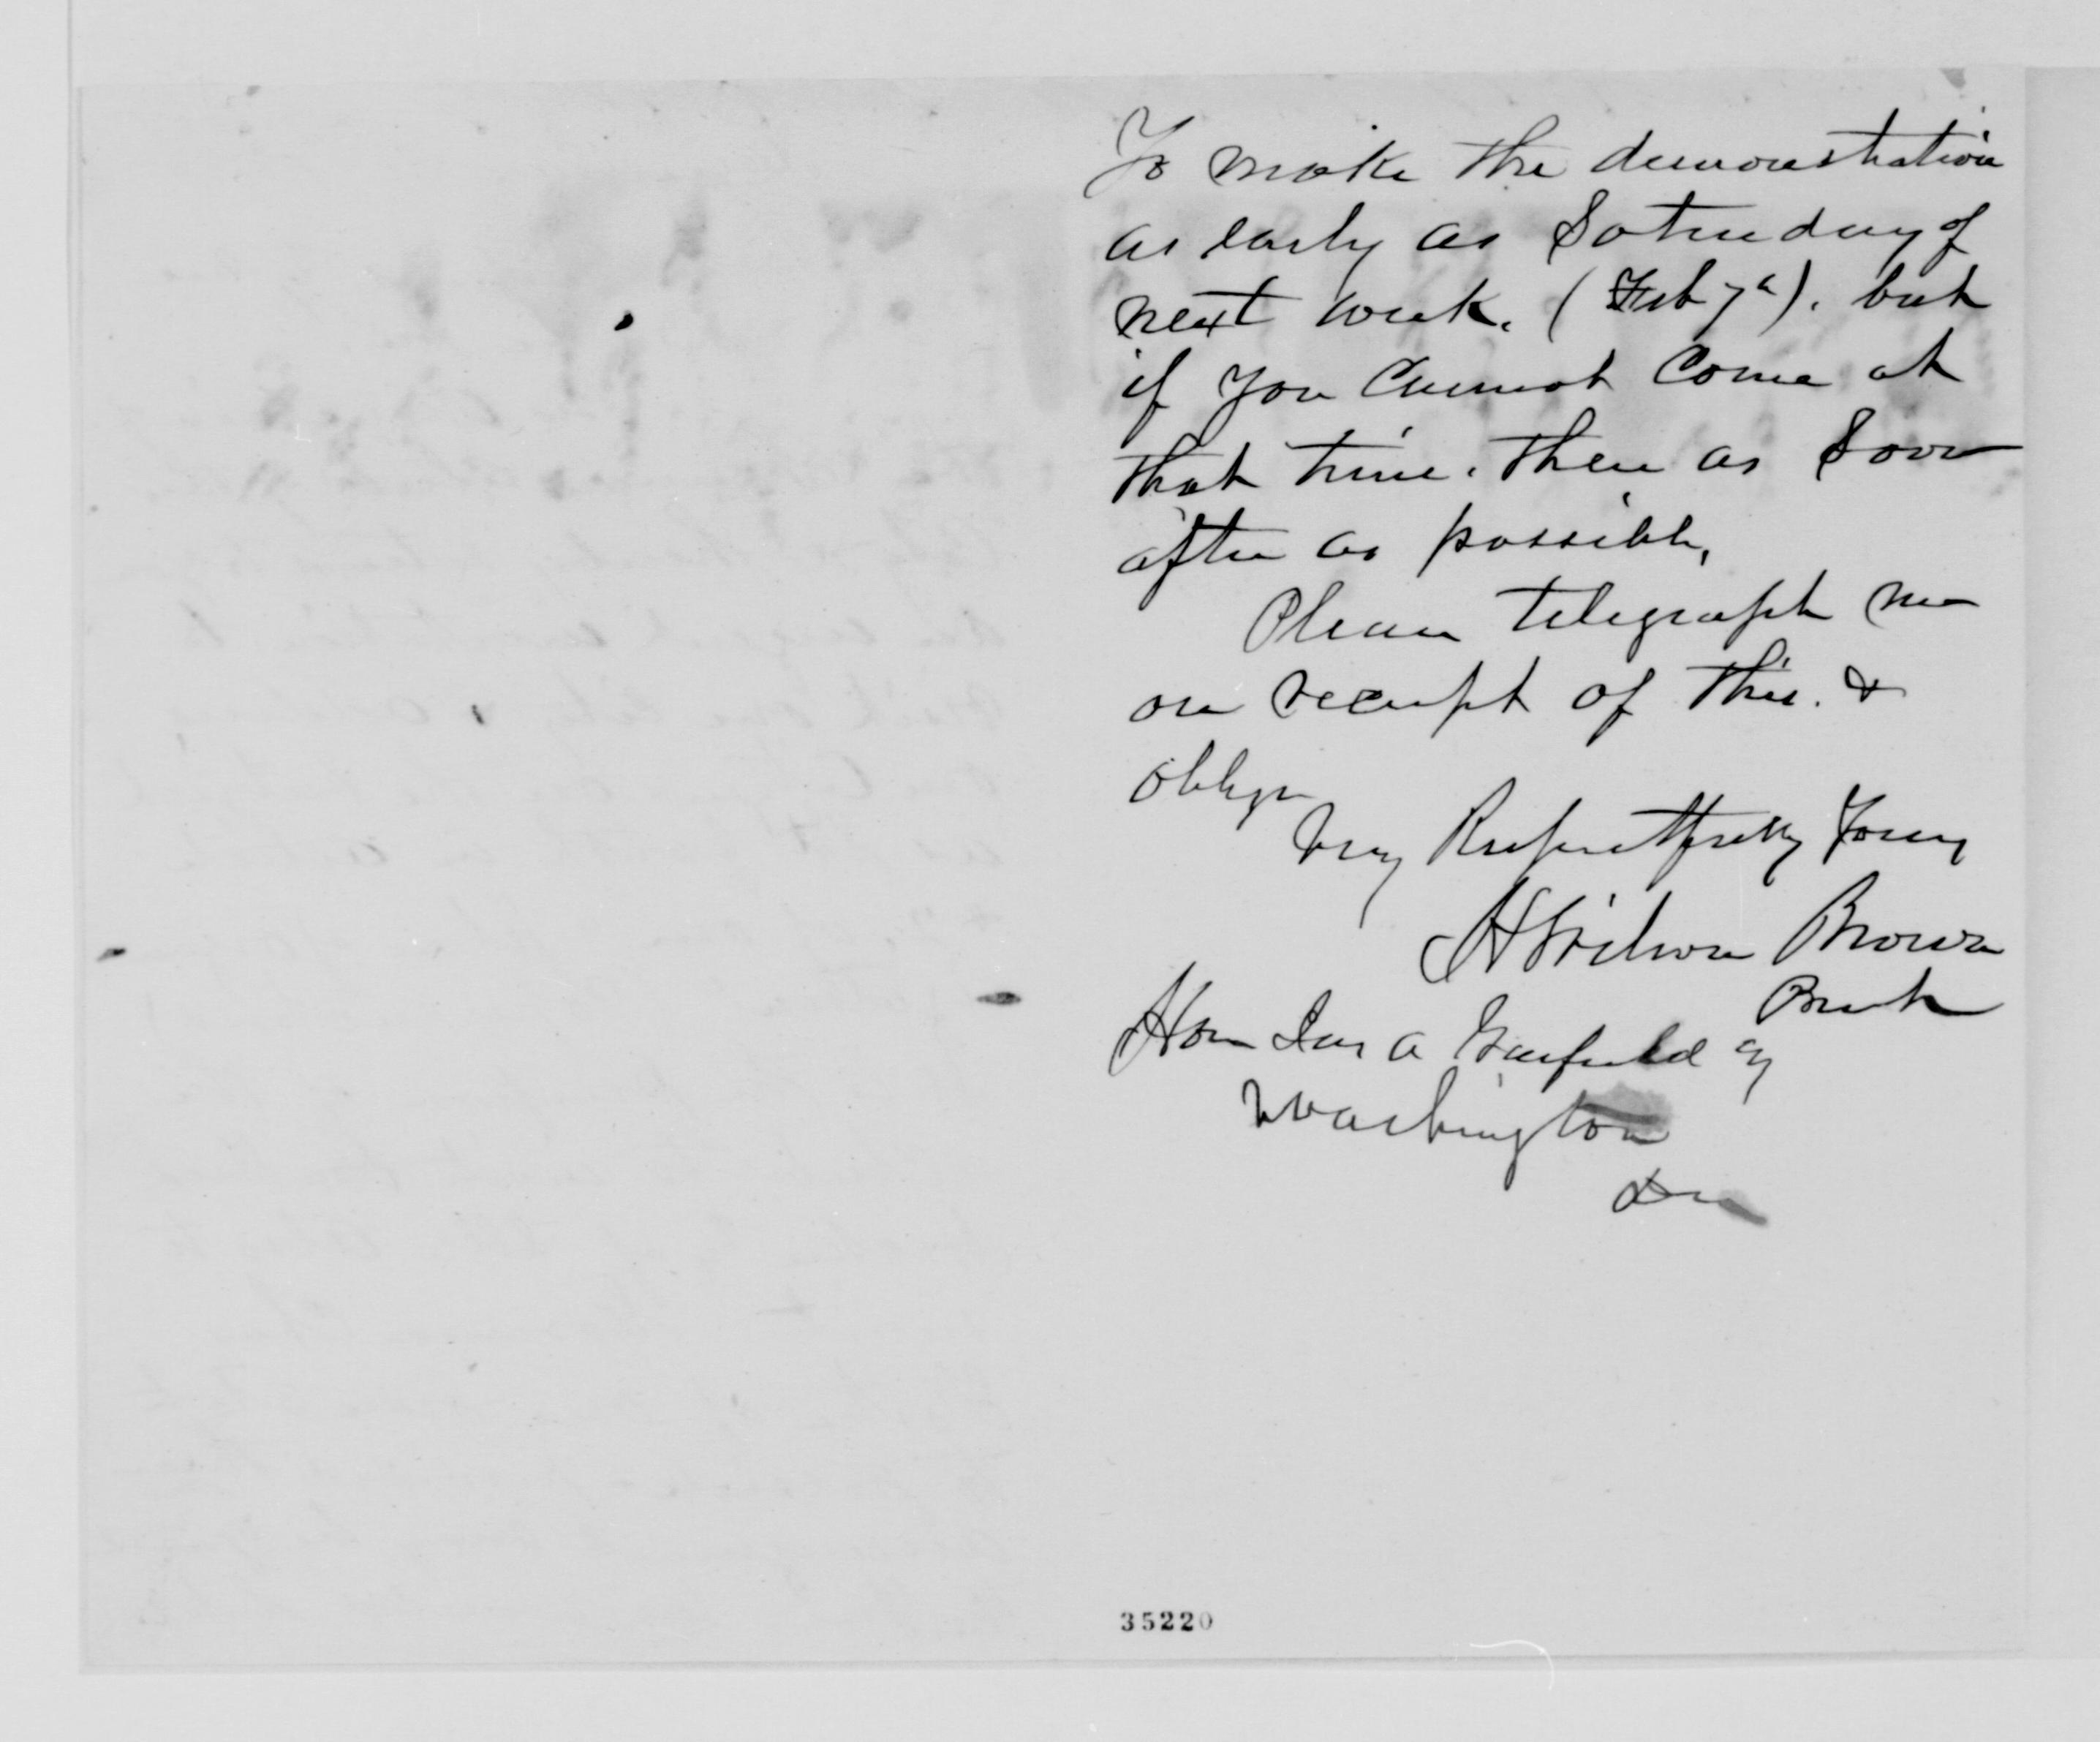 To make the demonstration
as early as Saturday of
next week. (Feb 7th). but
if you cannot come at
that time. then as soon
after as possible,
Please telegraph me
on receipt of this. &
oblige
Very Respectfully Yours
H Wilson Brown
Hon Jas A Garfield
Washington
35220